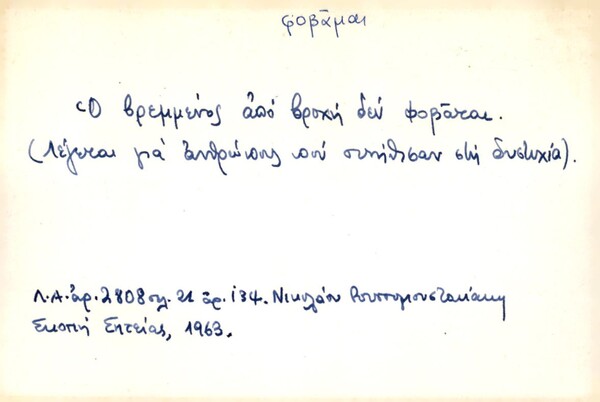 φοβᾶμαι
Ὁ βρεμμένος ἀπό βροχή δέν φοβᾶται.
(Λέγεται γιά ἀνθρώπους πού συνήθισαν στή δυστυχία).
Λ.Α. ἀρ. 2808 σελ. 21 ἀρ. 134. Νικολάου Ρουσσομουστακάκη
Σκοπή Σητείας, 1963.